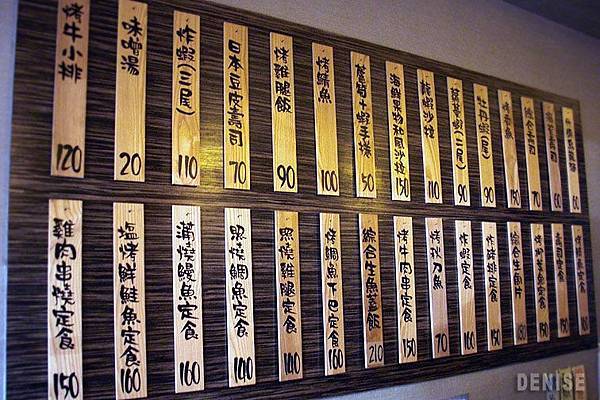 烤牛小排 120
味噌湯 20
炸蝦(三尾) 110
日本豆皮壽司 70
烤雞腿飯 90
烤鯖魚 100
蘆筍+蝦手捲 50
海鮮果物和風沙拉 150
龍蝦沙拉 110
牡丹蝦(二尾) 90
綜合壽司 70
雞肉串燒定食 150
塩烤鮮鮭魚定食 160
蒲燒鰻魚定食 160
照燒鯛魚定食 140
照燒雞腿定食 140
烤鯛魚下巴定食 160
綜合生魚蓋飯 210
烤牛肉串定食 150
烤秋刀魚 70
炸蝦定食 160
炸豬排定食 150
綜合生魚片 180
壽司定食
DENISE